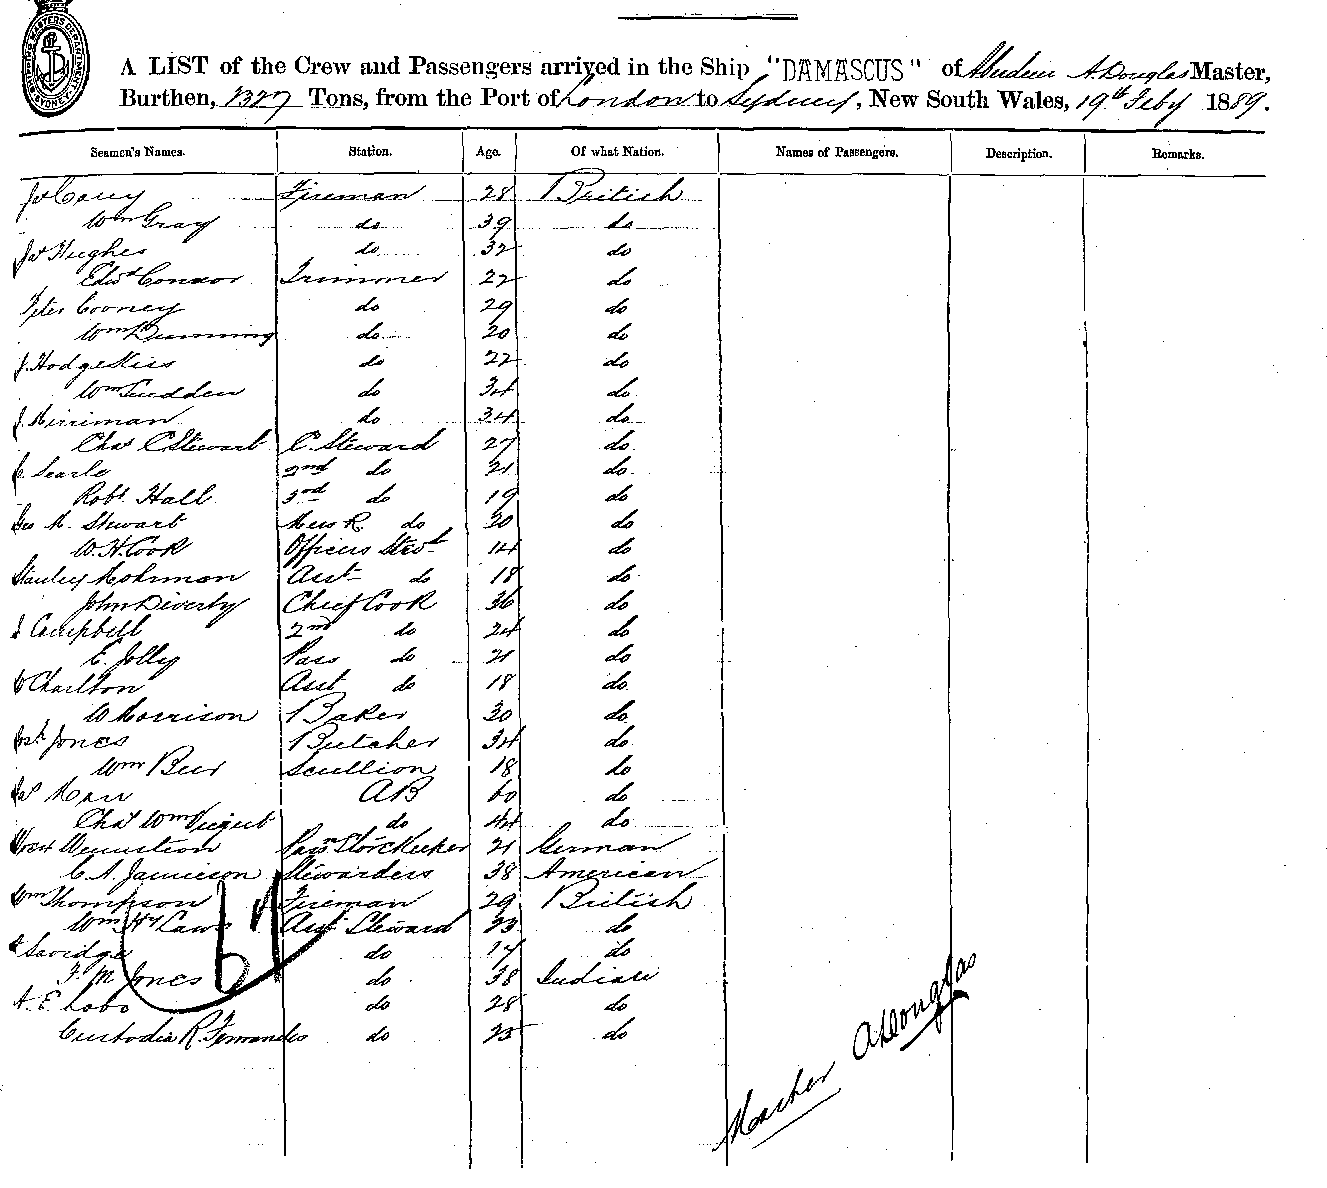 A LIST of the Crew and Passengers arrived in the Ship "DAMASCUS" of Aberdeen A. Douglas Master,
Burthen, 2327 Tons, from the Port of London to Sydney, New South Wales, 19th Feby 1889.
Seamen's Names. Station. Age. Of what Nation. Names of Passengers. Description. Remarks.
Fireman 28 British
Wm Gray do 39 do
Jas Hughes do 32 do
Edwd Connor Trimmer 22 do
Peter Cooney do 29 do
Wm do 20 do
J. Hodgekiss do 22 do
Wm do 34 do
J. Merriman do 34 do
Chas C Stewart C. Steward 27 do
Searle 2nd do 21 do
Robt Hall 3rd do 19 do
Geo M. Stewart Mess R do 20 do
W. H. Cook Officers Stewd 14 do
Stanley Asst do 18 do
John Diverty Chief Cook 36 do
Campbell 2nd do 24 do
E. Jolly Pass do 21 do
Charlton Asst do 18 do
W Morrison Baker 30 do
Jones Butcher 34 do
Wm Scullion 18 do
AB 60 do
Chas Wm do 44 do
Storekeeper 21 German
C. A. Jamieson Stewardess 38 American
Wm Thompson Fireman 29 British
Wm Hy Asst Steward 23 do
Savidge do 17 do
F. M. Jones do 38 Indian
A. E. Lobo do 28 do
Custodia R. Fernandes do 25 do
Master A Douglas